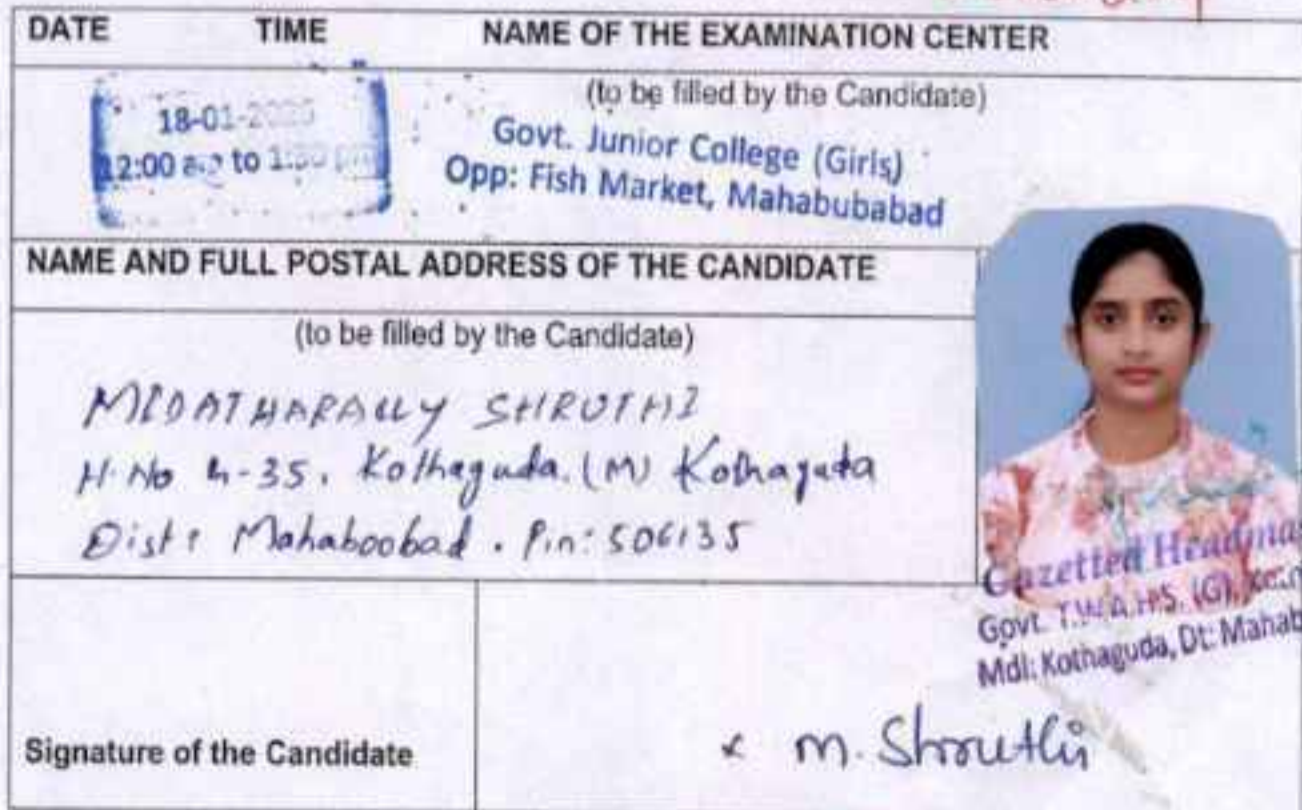 DATE TIME NAME OF THE EXAMINATION CENTER
(to be filled by the Candidate)
18-01-2020
12:00 to 1:30 pm
Govt. Junior College (Girls)
Opp: Fish Market, Mahabubabad
NAME AND FULL POSTAL ADDRESS OF THE CANDIDATE
(to be filled by the Candidate)
MIDATHAPALLY SHRUTHI
H.No 4-35. Kothaguda. (M) Kothaguda
Dist: Mahaboobad. Pin: 506135
Gazetted Headmas
Govt. T.W.A.H.S. (G),
Mdl: Kothaguda, Dt: Mahab
Signature of the Candidate
x M. Shruthi